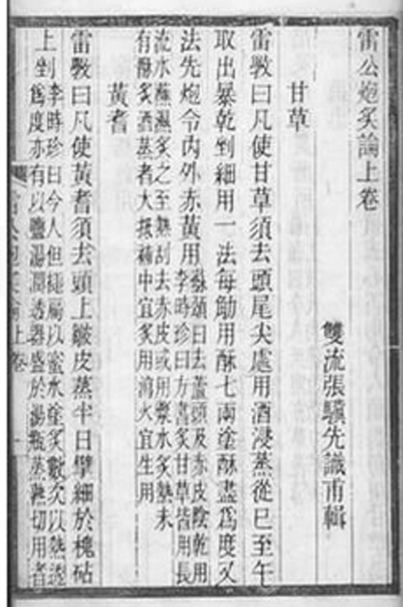 雷公炮炙論上卷
雙流張驥先識甫輯
甘草
雷斆曰凡使甘草須去頭尾尖處用酒浸蒸從巳至午
取出暴乾剉細用一法每觔用酥七兩塗酥盡爲度又
法先炮令內外赤黃用
蘇頌曰去蘆頭及赤皮陰乾用
李時珍曰方書炙甘草皆用長
流水蘸濕炙之至熟刮去赤皮或用漿水炙熟未
有酥炙酒蒸者大抵補中宜炙用瀉火宜生用
黃耆
雷斆曰凡使黃耆須去頭上皺皮蒸半日擘細於槐砧
上剉
李時珍曰今人但搥扁以蜜水塗炙數炙以熟透
爲度亦有以鹽湯潤透器盛於湯瓶蒸熟切用者